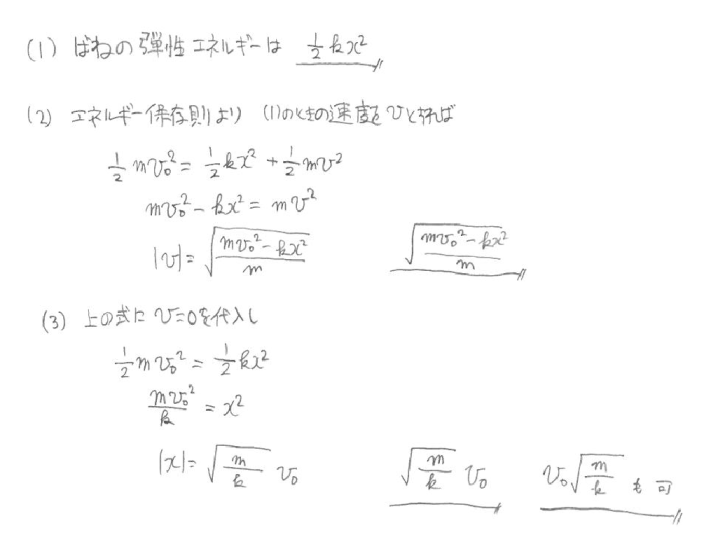 (1) ばねの弾性エネルギーは ½kx²
(2) エネルギー保存則より (1)のときの速度をvとすれば
½mv₀² = ½kx² + ½mv²
mv₀² - kx² = mv²
|v| = √((mv₀² - kx²)/m) √((mv₀² - kx²)/m)
(3) 上の式に v=0を代入し
½mv₀² = ½kx²
mv₀²/k = x²
|x| = √(m/k) v₀ √(m/k) v₀ v₀√(m/k) も可